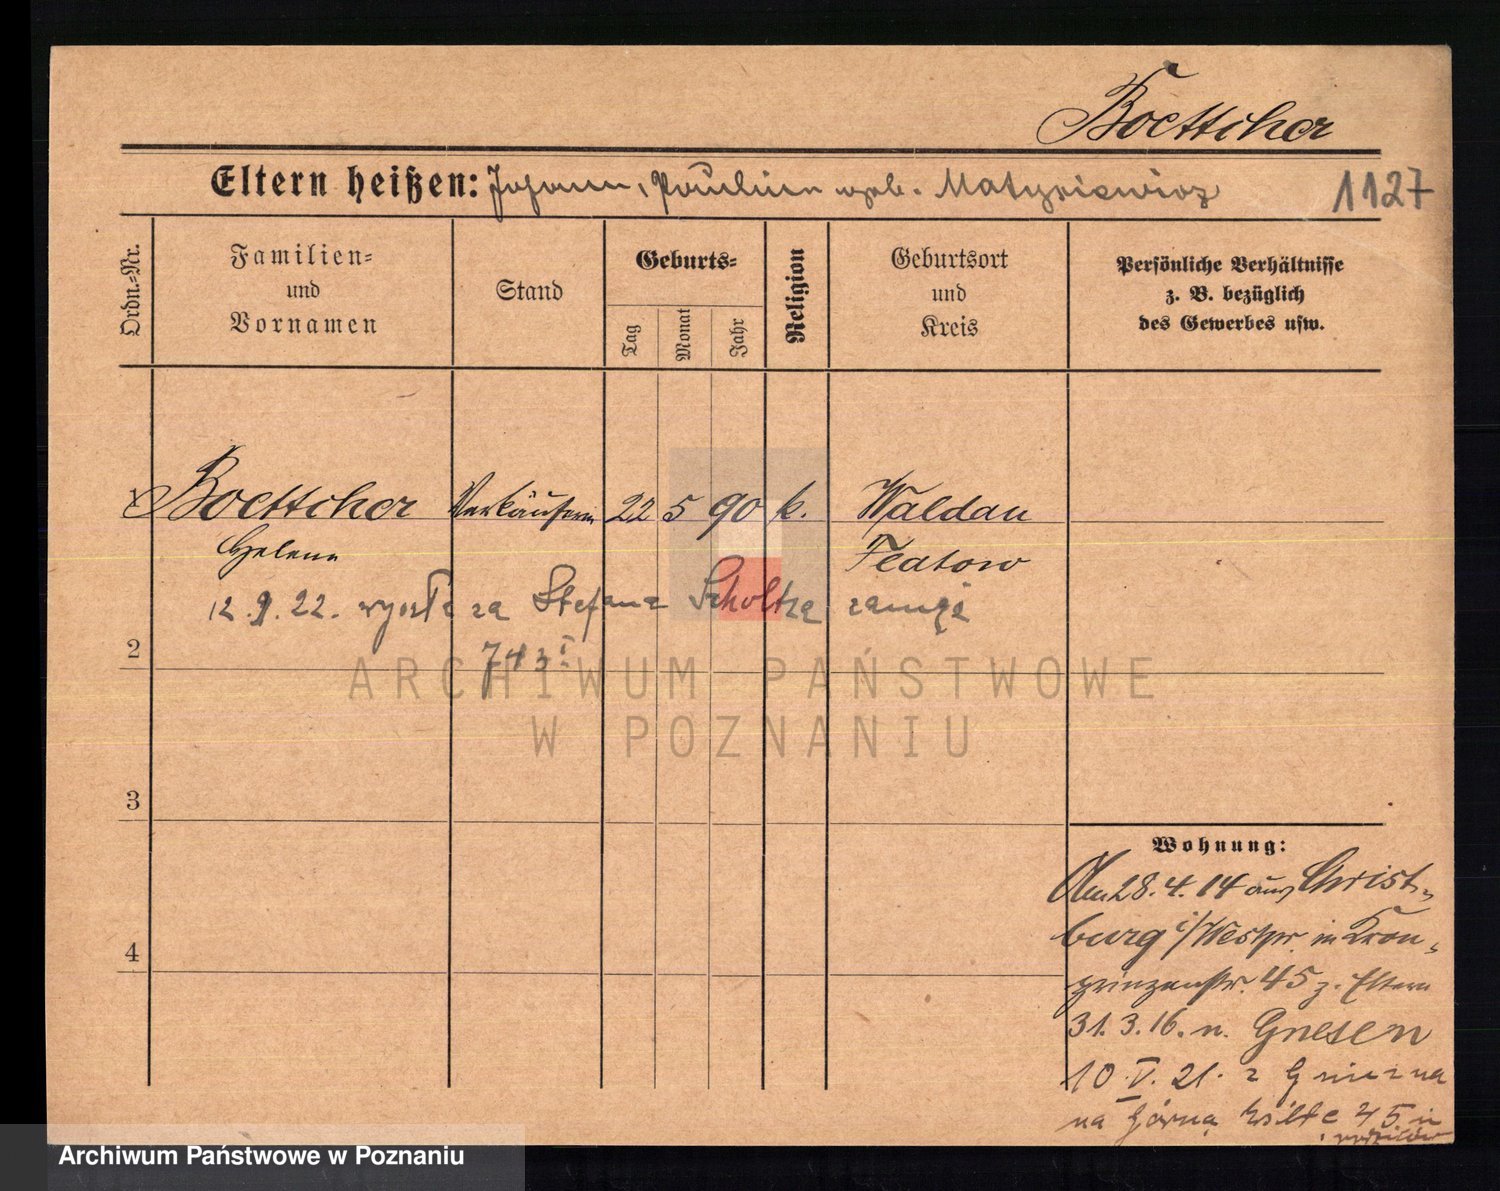 Boettcher
Eltern heißen: Johann, Paulina geb. Matysiewicz
1127
Ordn.-Nr.
Familien-
und
Vornamen
Stand
Geburts-
Tag
Monat
Jahr
Religion
Geburtsort
und
Kreis
Persönliche Verhältnisse
z. B. bezüglich
des Gewerbes usw.
1 Boettcher Verkäuferin 22 5 90 k. Waldau
Helene Flatow
12.9.22. wyszła za Stefana Scholtza zamąż
743 I
2
3
4
Wohnung:
Am 28.4.14 aus Christ-
burg i/Westpr. in Kron-
prinzenstr. 45 z. Eltern
31.3.16. n. Gnesen
10.V.21. z Gniezna
na Górną Wildę 45
rodziców
ARCHIWUM PAŃSTWOWE
W POZNANIU
Archiwum Państwowe w Poznaniu